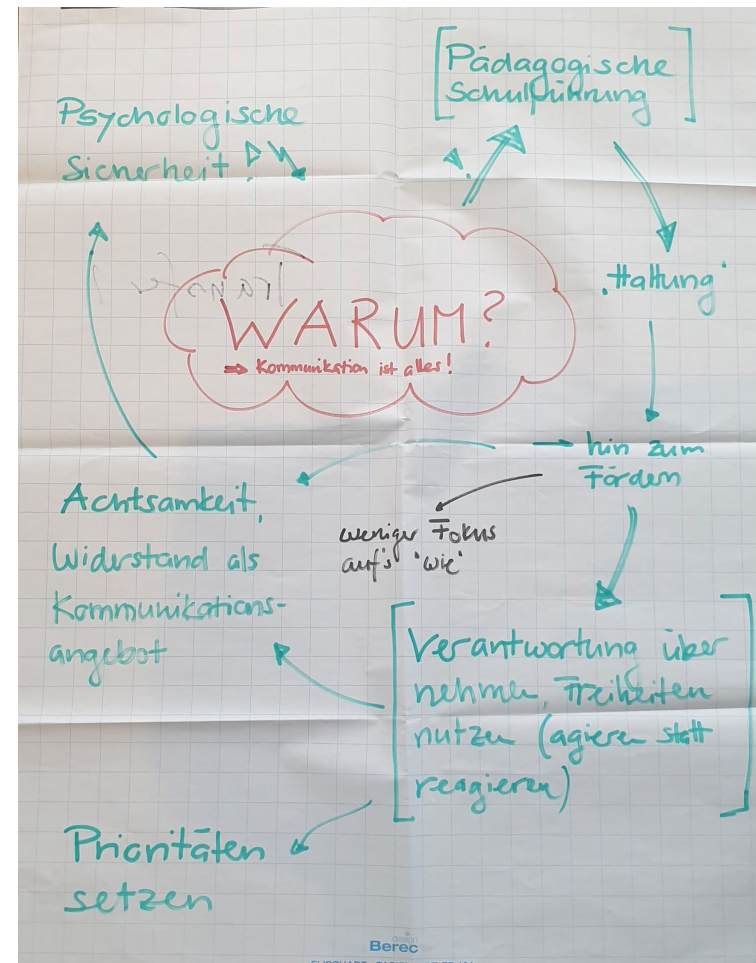 Pädagogische
Schulführung
Psychologische
Sicherheit!
"Haltung"
Transfer
WARUM?
⇒ Kommunikation ist alles!
→ hin zum
Fördern
weniger Fokus
auf's "wie"
Achtsamkeit,
Widerstand als
Kommunikations-
angebot
[Verantwortung über
nehmen, Freiheiten
nutzen (agieren statt
reagieren)]
Prioritäten
setzen
design
Berec